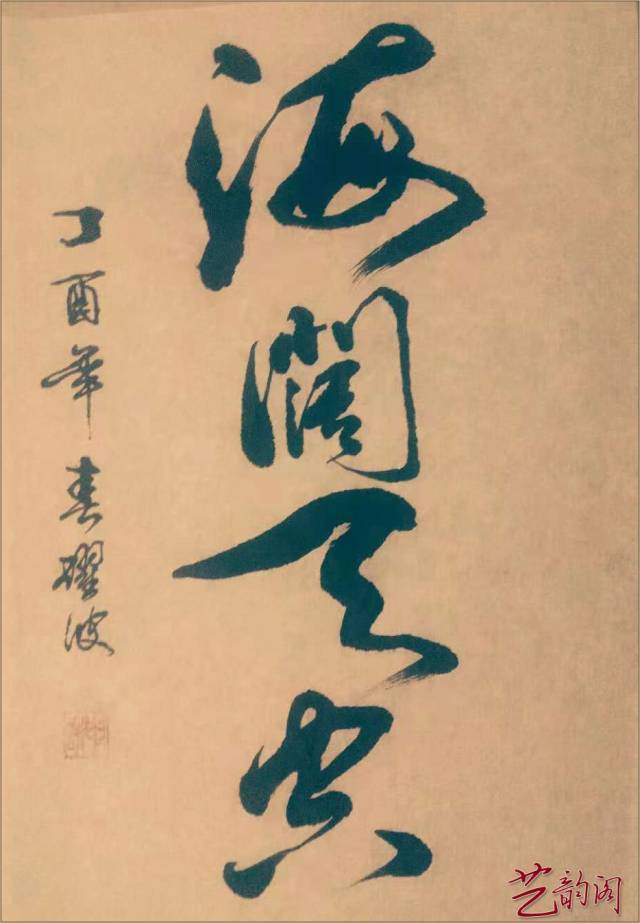 海濶天空
丁酉年春耀波
艺韵阁